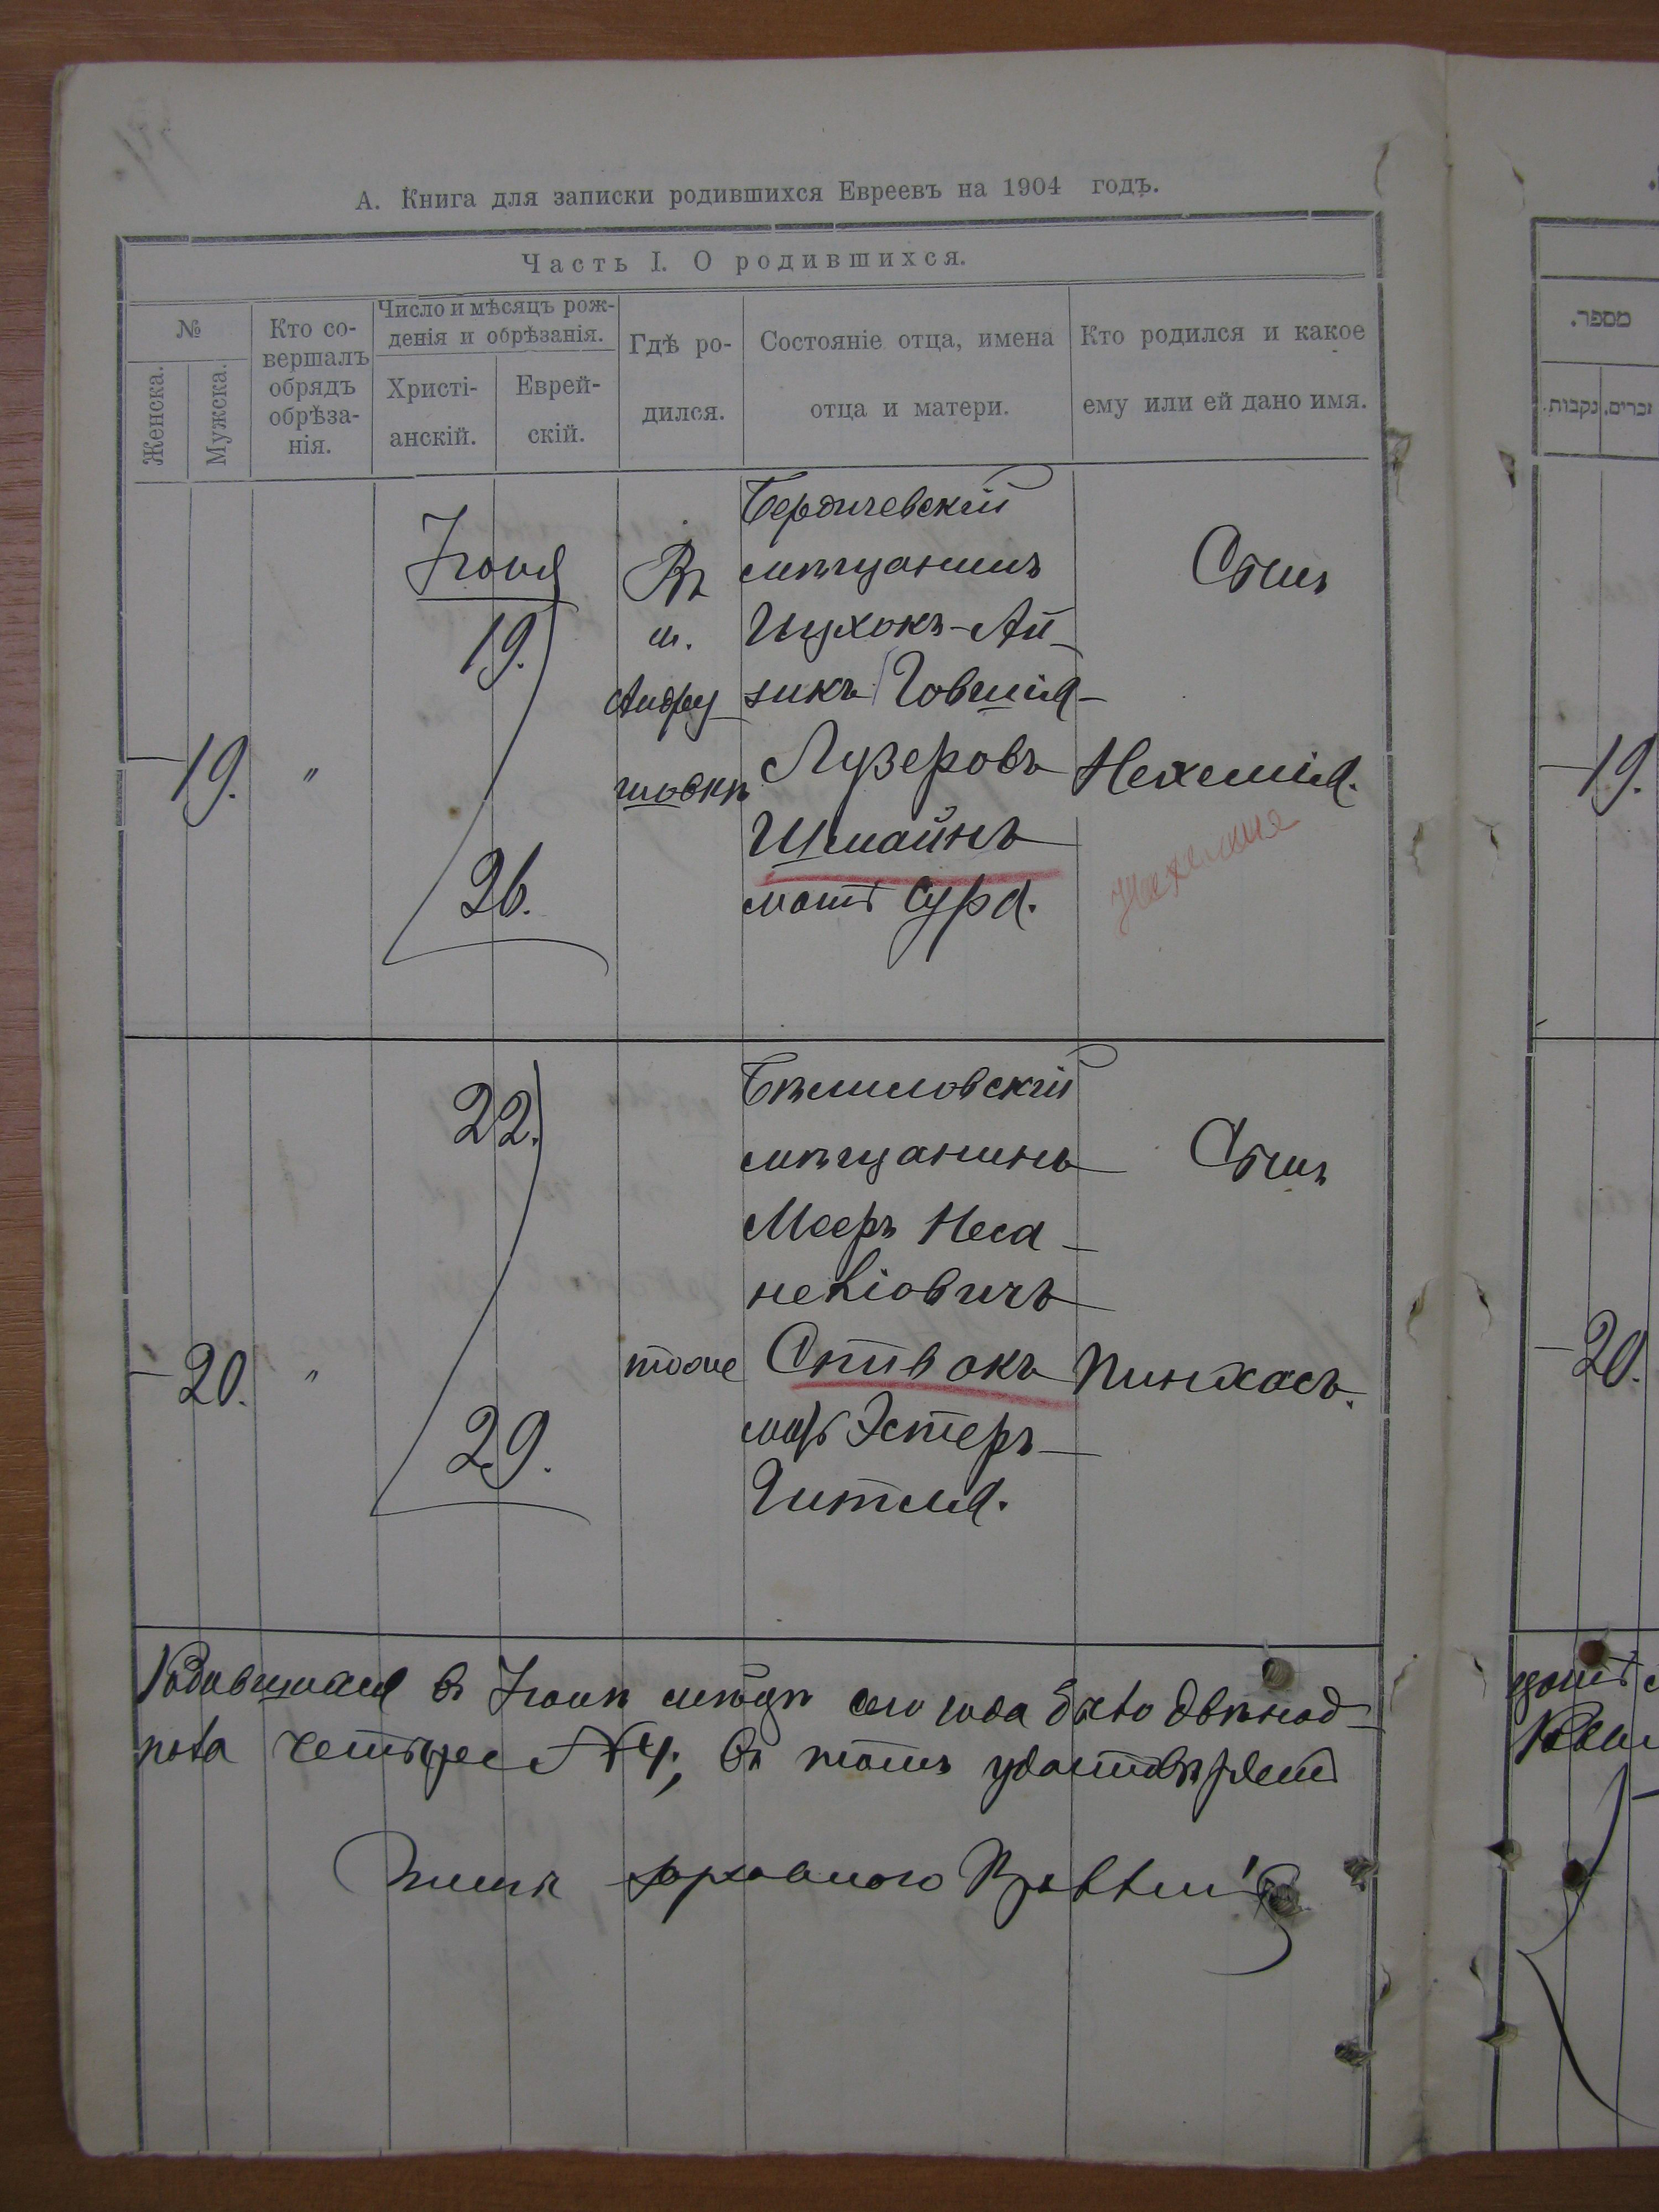 А. Книга для записки родившихся Евреевъ на 1904 годъ.
Часть I. О родившихся.
№
Женска.
Мужска.
Кто со-
вершалъ
обрядъ
обрѣза-
нія.
Число и мѣсяцъ рож-
денія и обрѣзанія.
Христі-
анскій.
Еврей-
скій.
Гдѣ ро-
дился.
Состояніе отца, имена
отца и матери.
Кто родился и какое
ему или ей дано имя.
19.
"
Іюня
19.
26.
Въ
м.
Андру-
шовкѣ
Бердичевскій
мѣщанинъ
Ицхокъ-Ай-
зикъ Говшія-
Лузеровъ
Штайнъ
мать Сура.
Сынъ
Нехемія.
Нехемия
20.
"
22.
29.
тоже
Бѣлиловскій
мѣщанинъ
Мееръ Неса-
неліовичъ
Спивакъ
мать Эстеръ
Гитля.
Сынъ
Пинхасъ.
Родившихся въ Іюнѣ мѣсяцѣ сего года было двѣнад-
пола четыре №4, въ томъ удостовѣряетъ
Раввин
מספר.
נקבות.
זכרים.
19.
20.